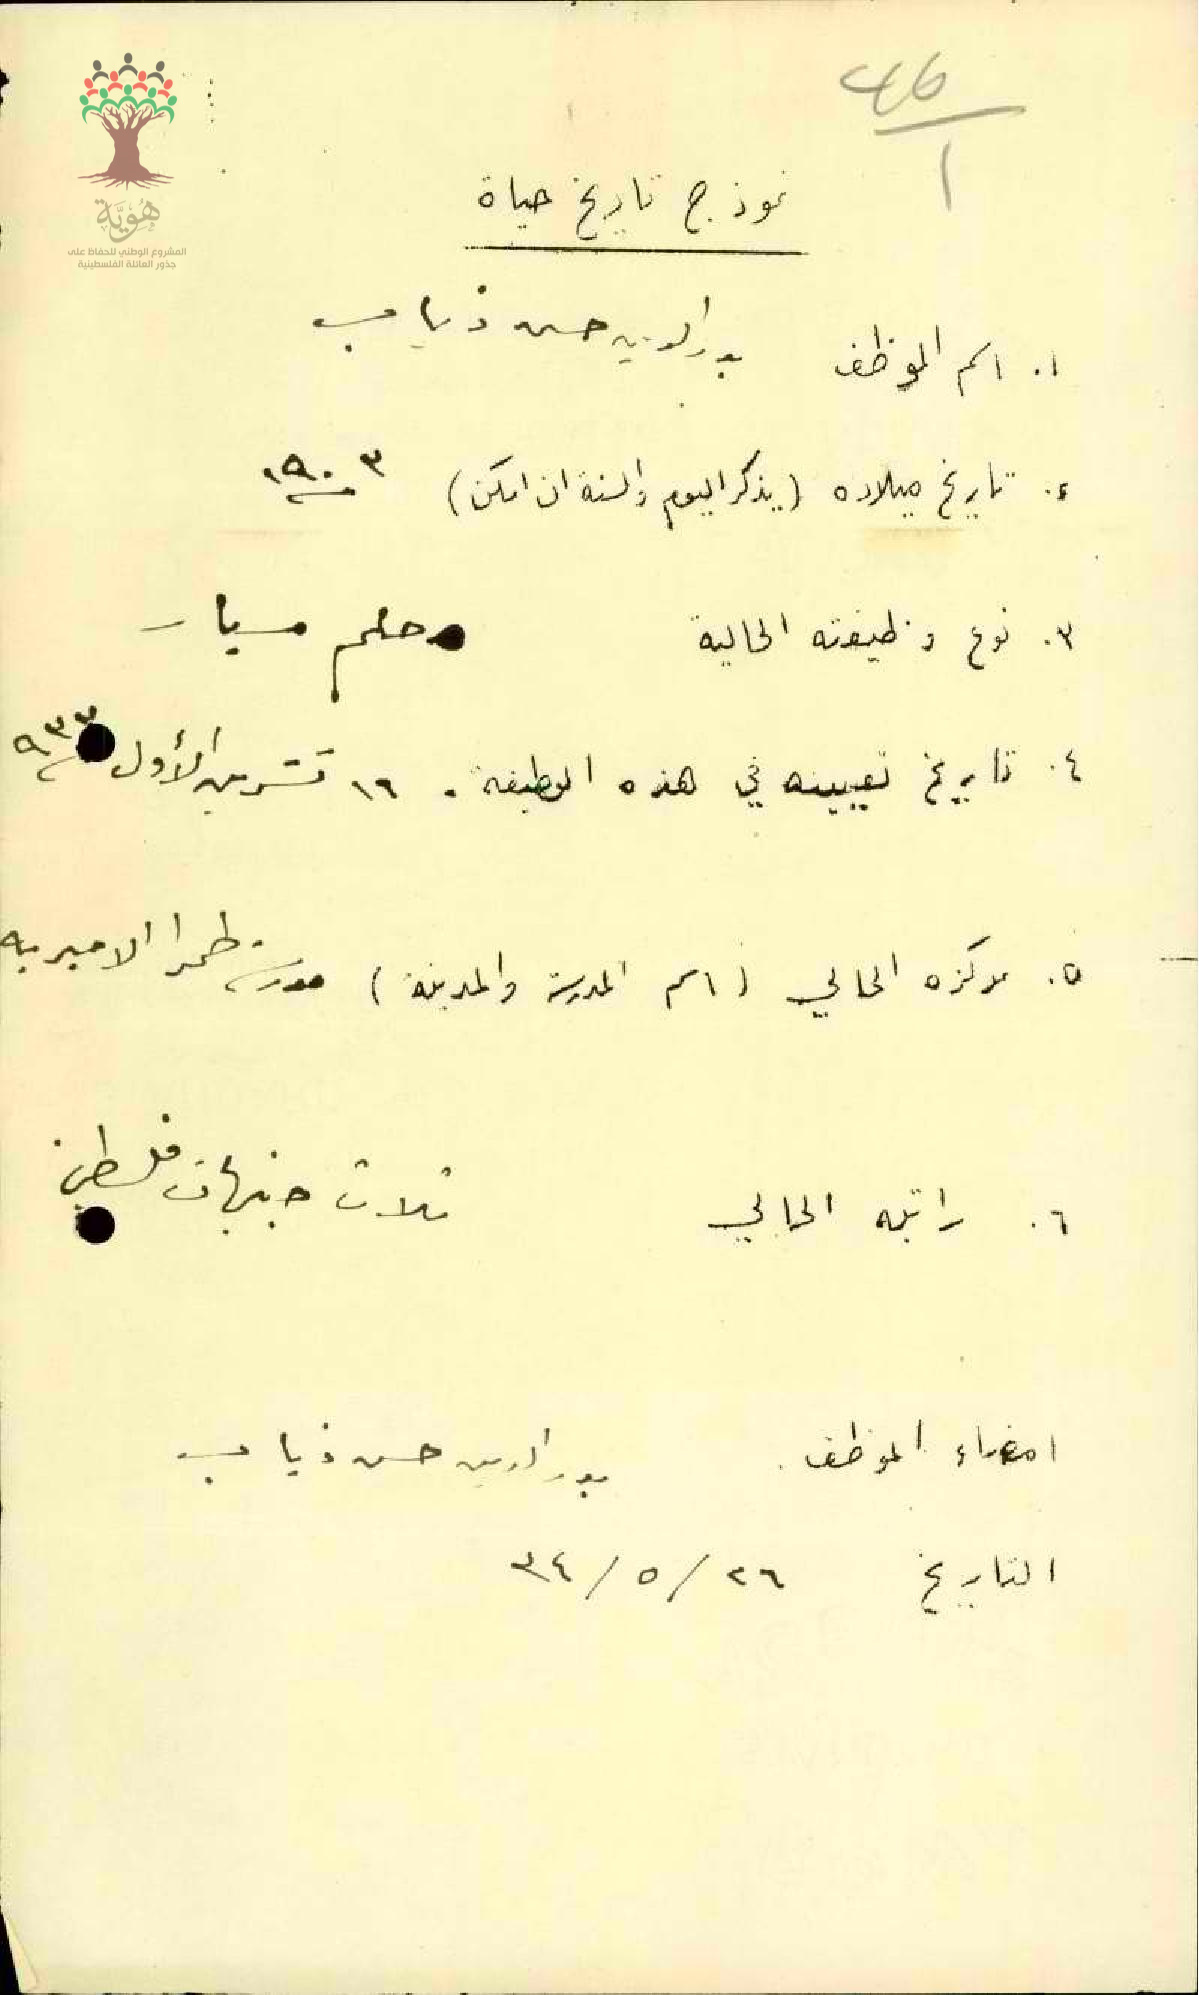 46
1
هُوِيَّة
المشروع الوطني للحفاظ على
جذور العائلة الفلسطينية
نموذج تاريخ حياة
١. اسم الموظف بدر الدين حسن ذياب
٢. تاريخ ميلاده (يذكر اليوم والسنة ان امكن) ١٩٠٣
٣. نوع وظيفته الحالية معلم سيار
٤. تاريخ تعيينه في هذه الوظيفة. ١٦ تشرين الأول ٩٣٣
٥. مركزه الحالي (اسم المدرسة والمدينة) مدرسة طمرا الاميريه
٦. راتبه الحالي ثلاث جنيهات فلسطيني
امضاء الموظف. بدر الدين حسن ذياب
التاريخ ٢٦/٥/٣٤